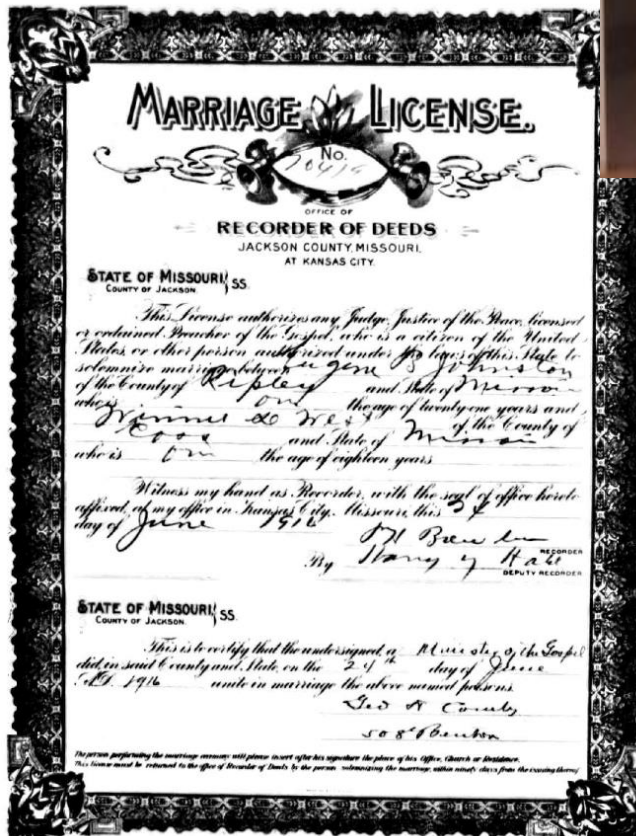 MARRIAGE LICENSE.
No.
OFFICE OF
RECORDER OF DEEDS
JACKSON COUNTY, MISSOURI,
AT KANSAS CITY.
STATE OF MISSOURI, } SS.
COUNTY OF JACKSON.
This License authorizes any Judge, Justice of the Peace, licensed
or ordained Preacher of the Gospel, who is a citizen of the United
States, or other person authorized under the laws of this State to
solemnize marriage between Eugene B Johnston
of the County of Ripley and State of Missouri
who is over the age of twenty-one years and
Winnie L West of the County of
Cass and State of Missouri
who is over the age of eighteen years
Witness my hand as Recorder, with the seal of office hereto
affixed, at my office in Kansas City, Missouri, this 24
day of June 1916
RECORDER
By Harry Hall
DEPUTY RECORDER
STATE OF MISSOURI, } SS.
COUNTY OF JACKSON.
This is to certify that the undersigned, a Minister of the Gospel
did, in said County and State, on the 24th day of June
A.D. 1916 unite in marriage the above named persons.
Geo H Combs
508 Benton
The person performing the marriage ceremony will please insert after his signature the place of his Office, Church or Residence.
This license must be returned to the office of Recorder of Deeds by the person solemnizing the marriage, within ninety days from the issuing thereof